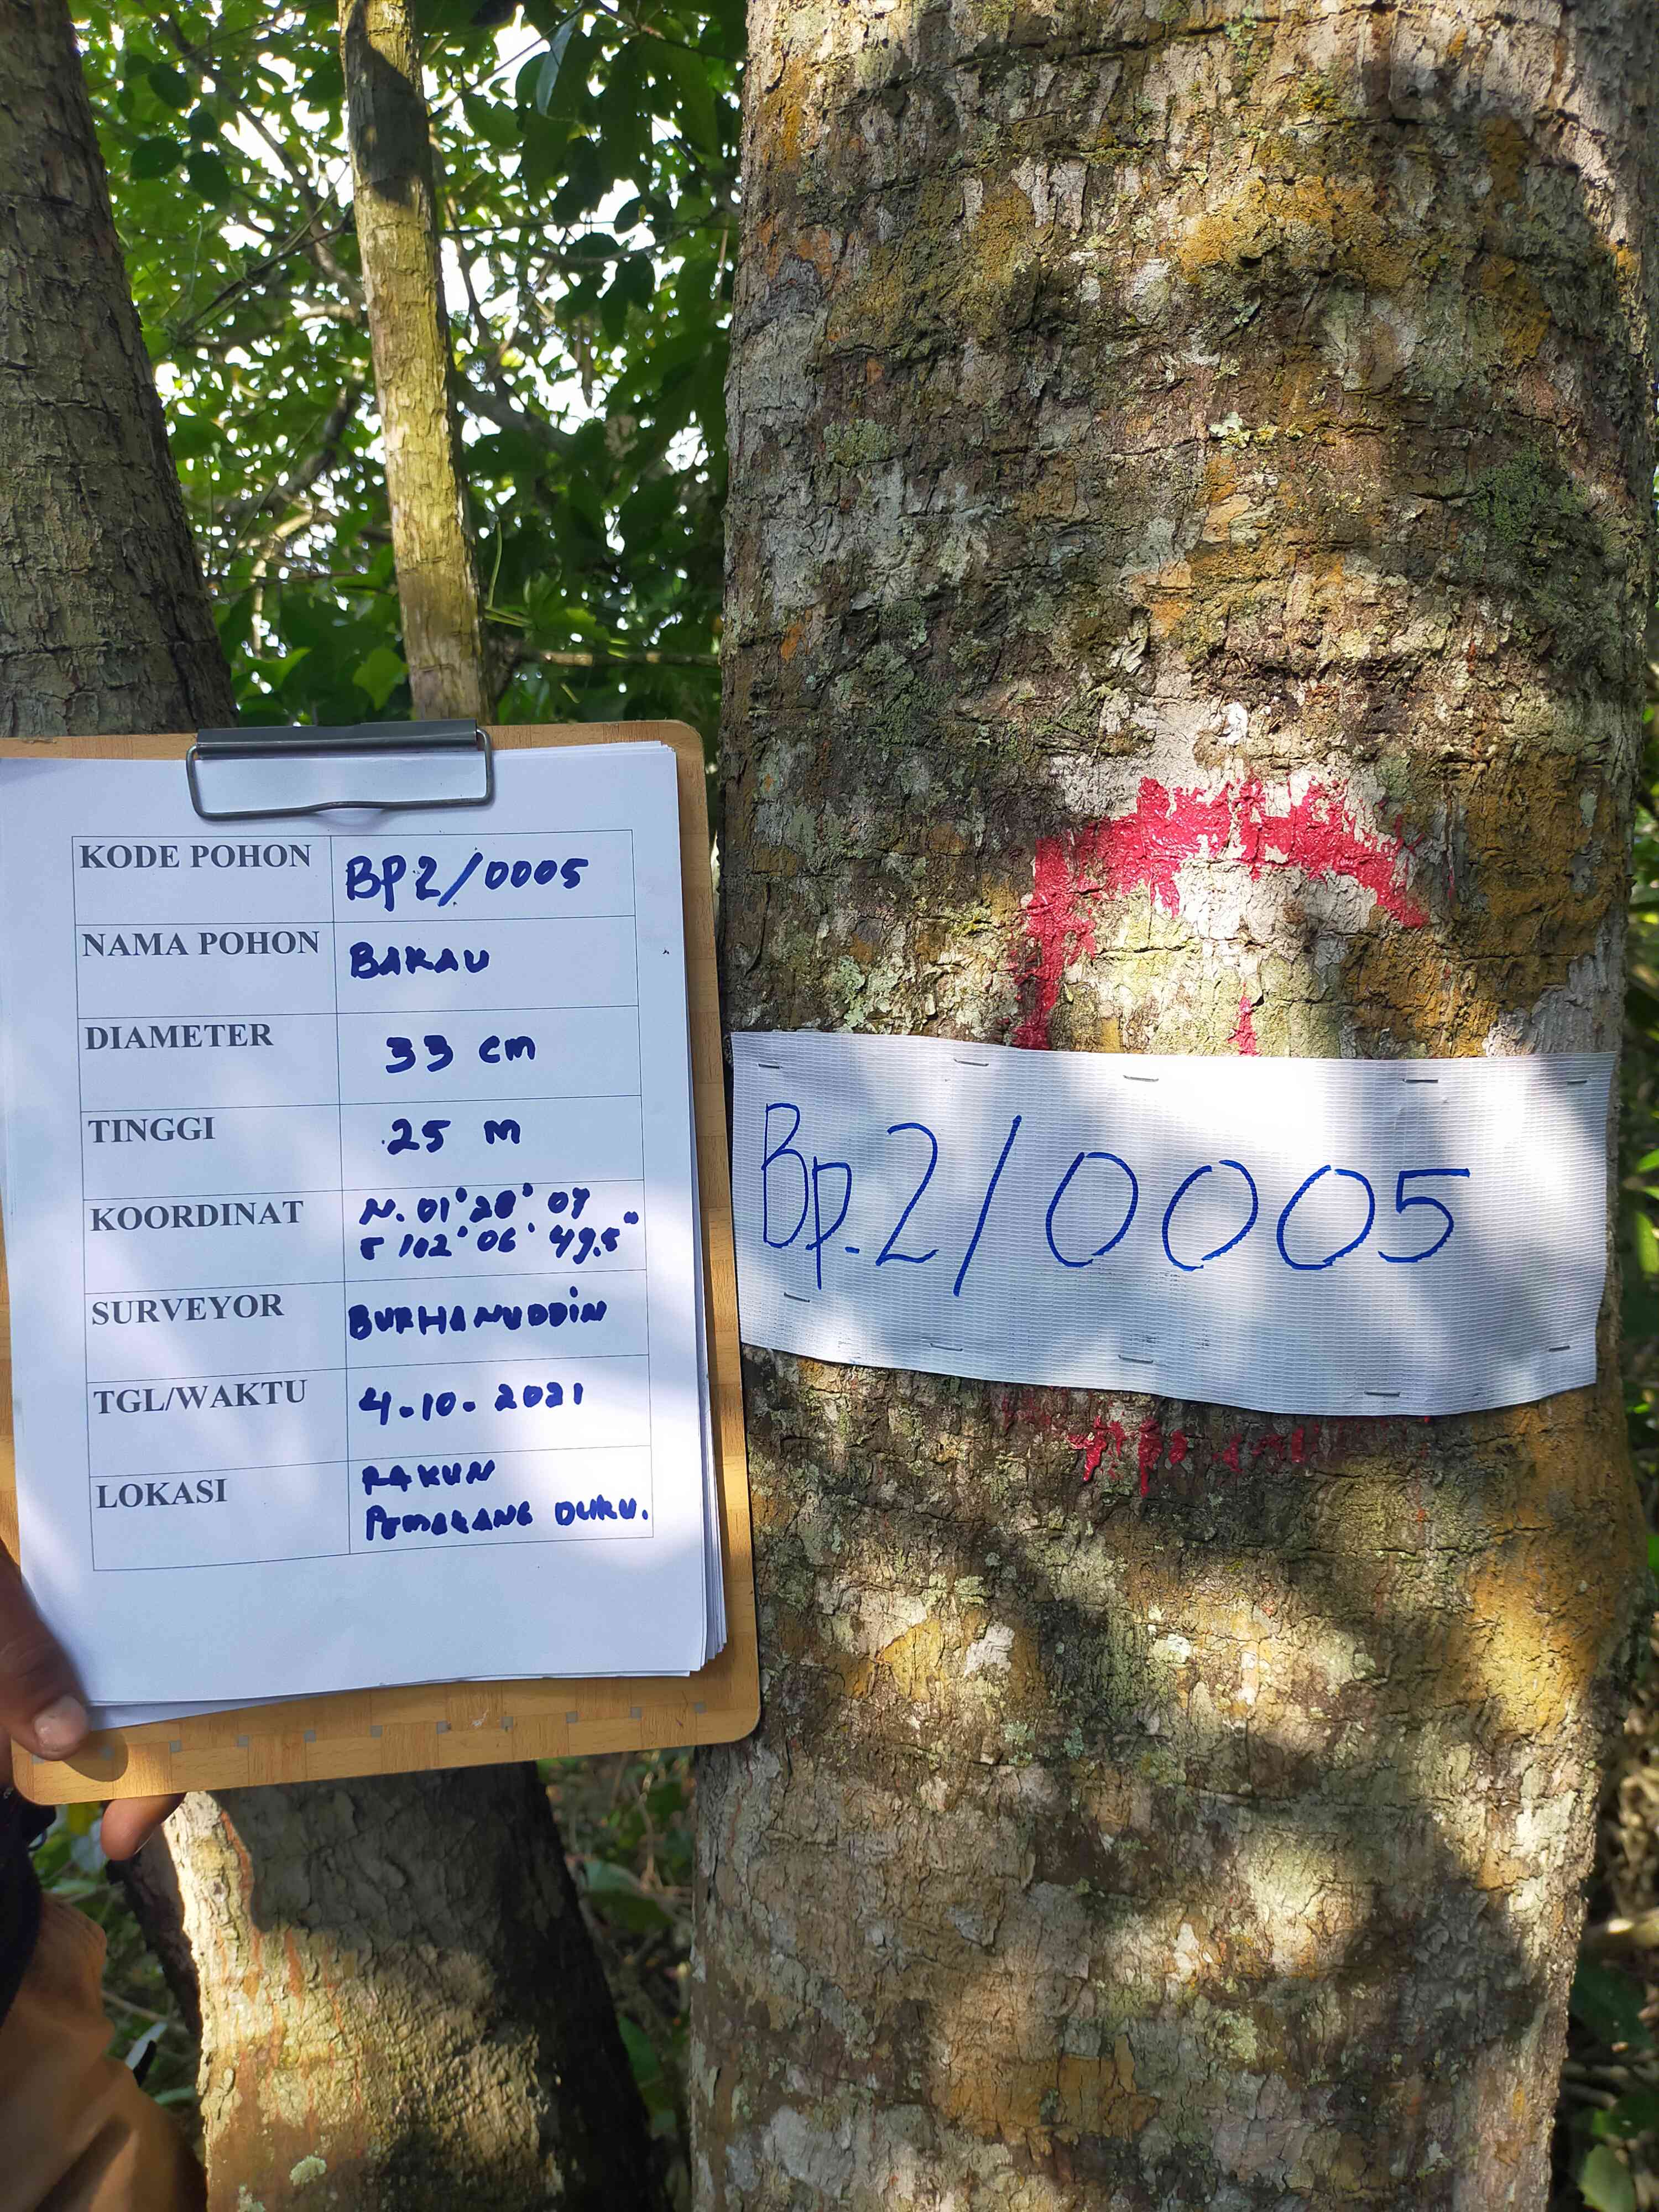 KODE POHON BP2/0005
NAMA POHON BAKAU
DIAMETER 33 cm
TINGGI 25 M
KOORDINAT N. 01° 28' 07
E 102° 06' 49.5"
SURVEYOR BURHANUDDIN
TGL/WAKTU 4.10.2021
LOKASI
Bp.2/0005